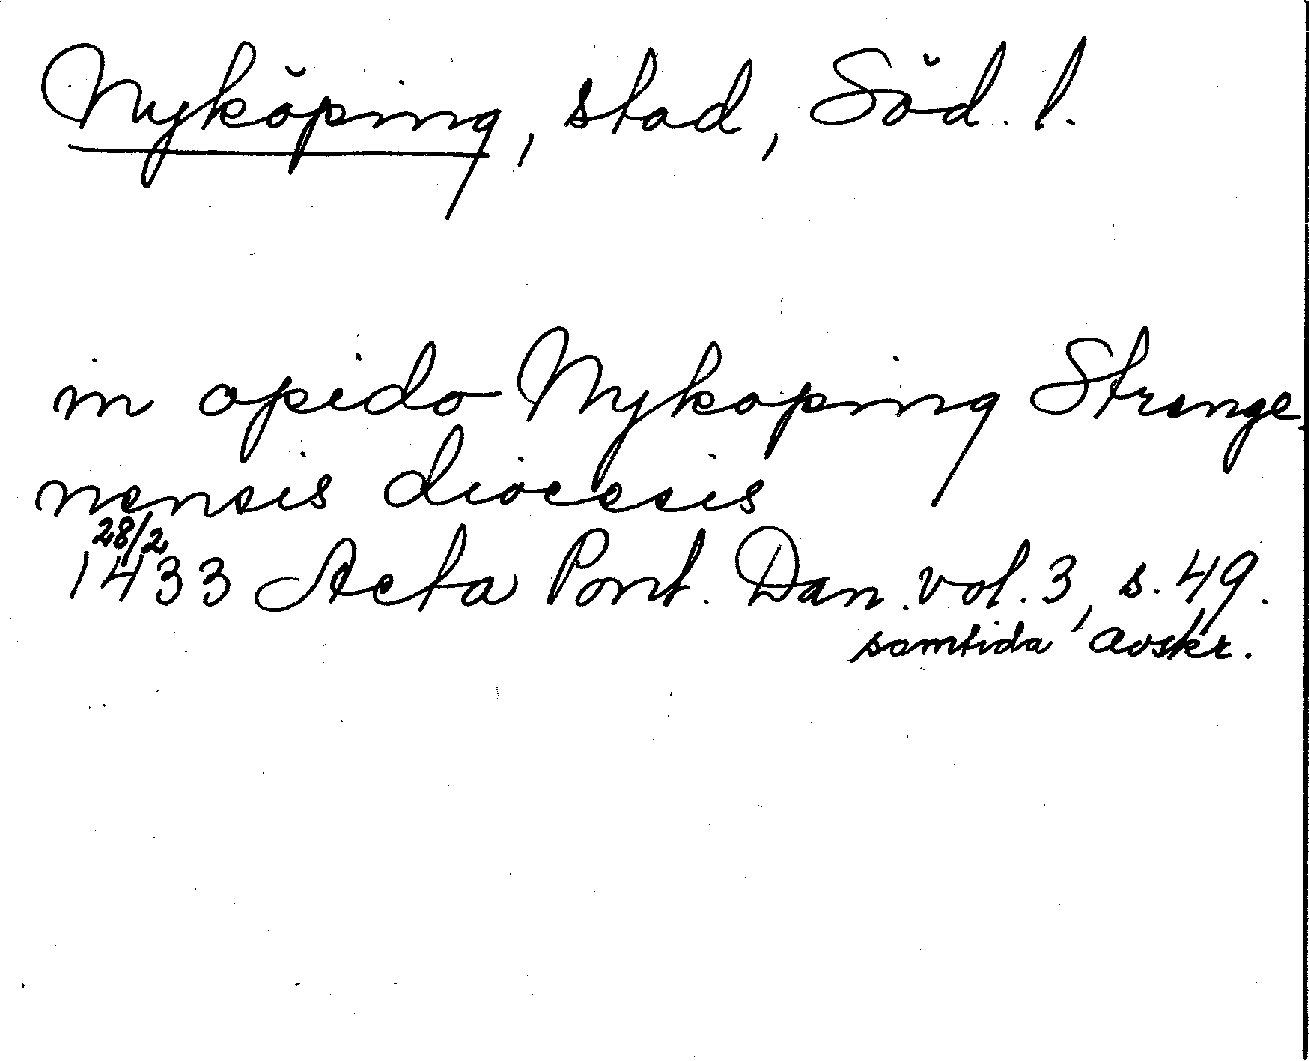 Nyköping, stad, Söd. l.
in opido Nykoping Strenge-
nensis diocesis
28/2
1433 Acta Pont. Dan. vol. 3, s. 49.
samtida avskr.